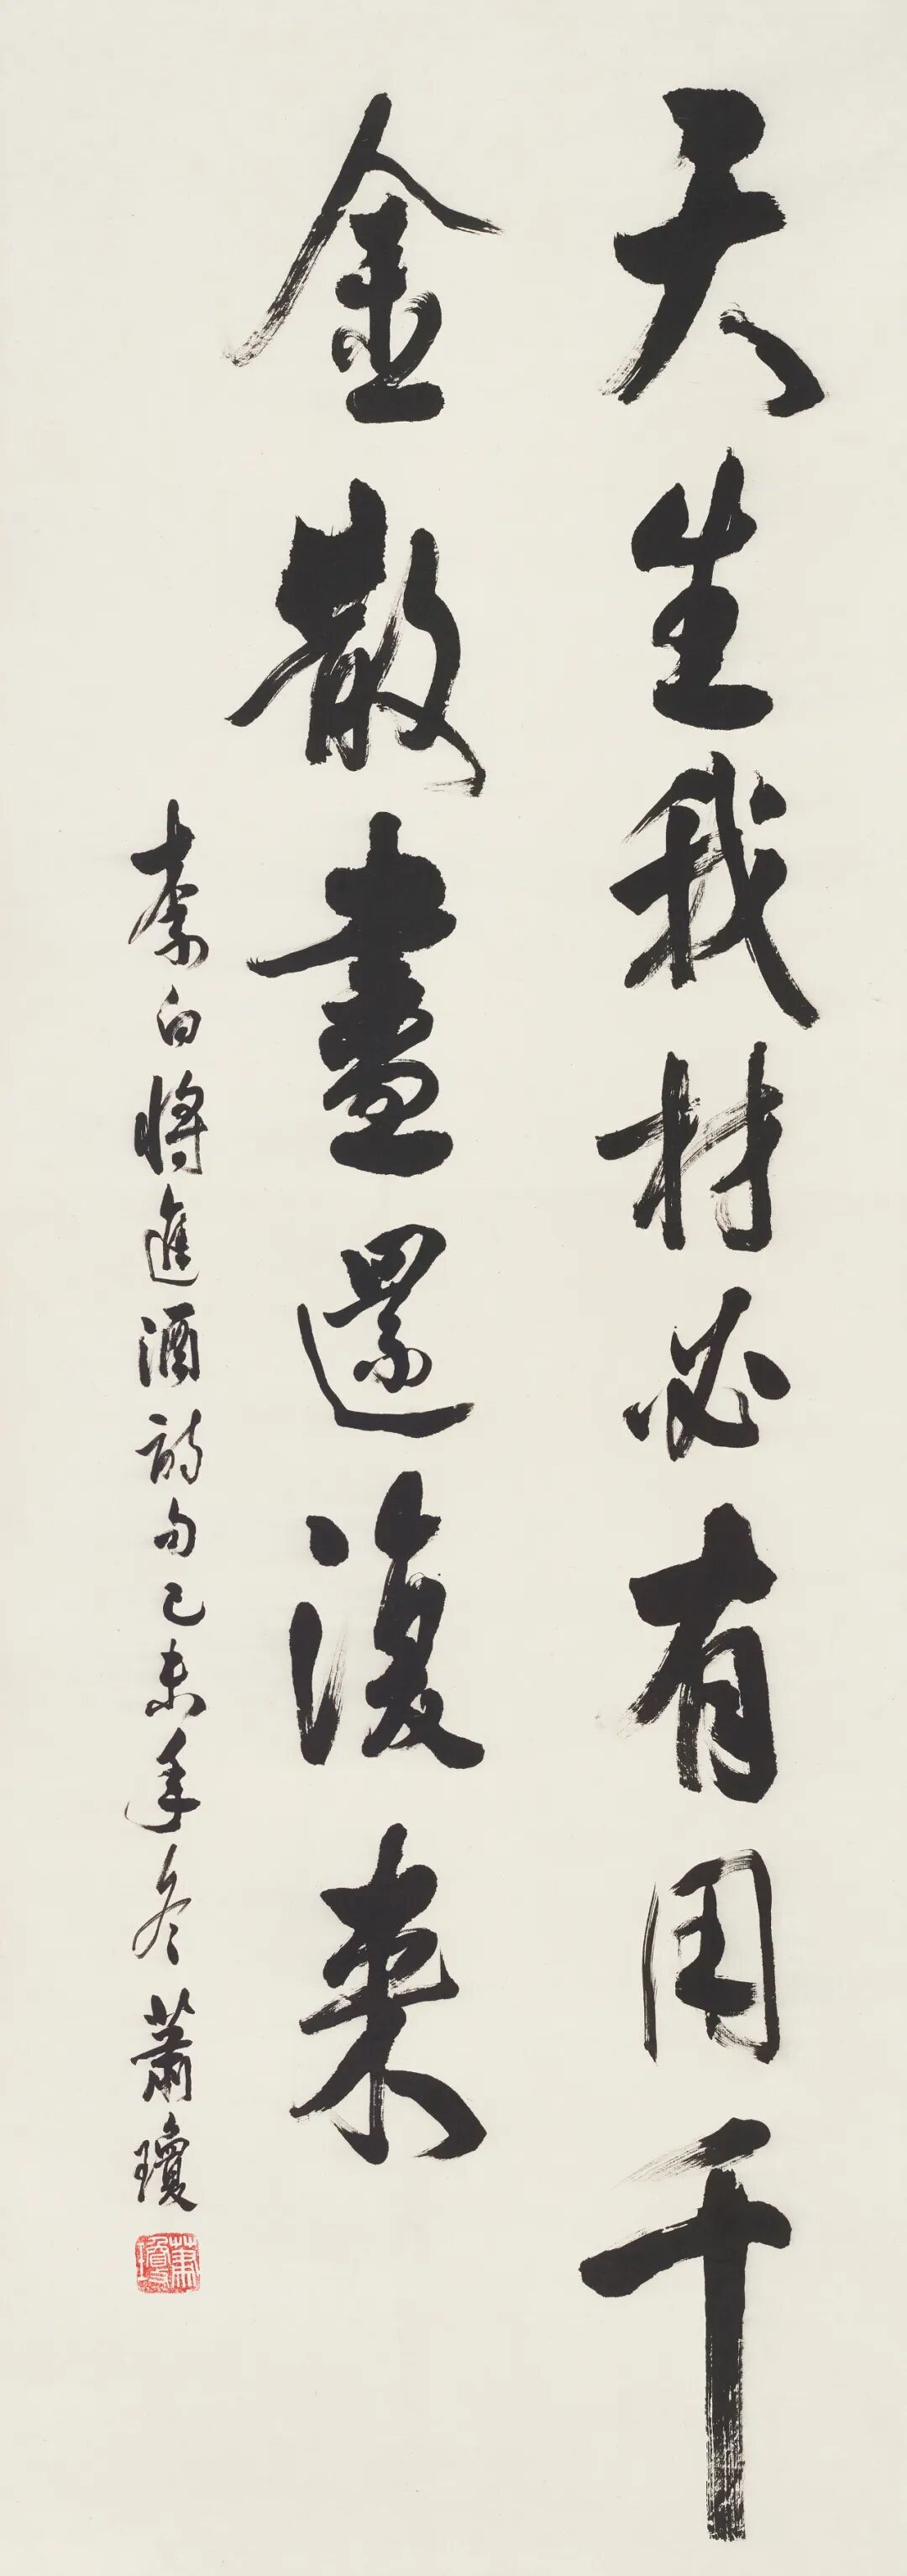 天生我材必有用千
金散盡還復来
李白將進酒詩句己未年冬蕭瓊
蕭瓊